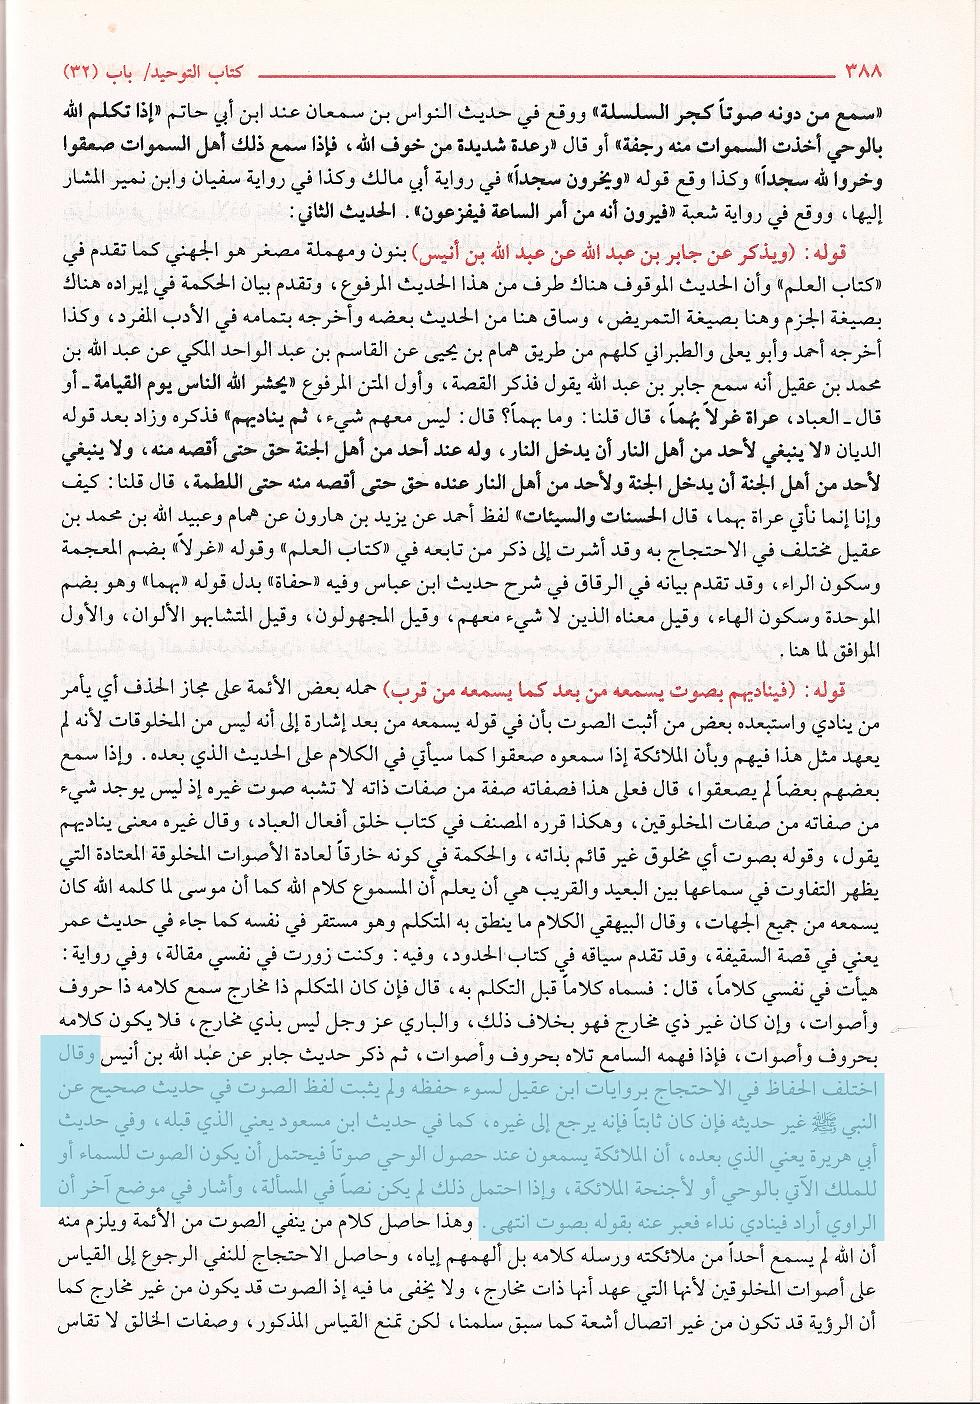 ٣٨٨ كتاب التوحيد/ باب (٣٢)
«سمع من دونه صوتاً كجر السلسلة» ووقع في حديث النواس بن سمعان عند ابن أبي حاتم «إذا تكلم الله
بالوحي أخذت السموات منه رجفة» أو قال «رعدة شديدة من خوف الله، فإذا سمع ذلك أهل السموات صعقوا
وخروا لله سجداً» وكذا وقع قوله «ويخرون سجداً» في رواية أبي مالك وكذا في رواية سفيان وابن نمير المشار
إليها، ووقع في رواية شعبة «فيرون أنه من أمر الساعة فيفزعون». الحديث الثاني:
قوله: (ويذكر عن جابر بن عبد الله عن عبد الله بن أنيس) بنون ومهملة مصغر هو الجهني كما تقدم في
«كتاب العلم» وأن الحديث الموقوف هناك طرف من هذا الحديث المرفوع، وتقدم بيان الحكمة في إيراده هناك
بصيغة الجزم وهنا بصيغة التمريض، وساق هنا من الحديث بعضه وأخرجه بتمامه في الأدب المفرد، وكذا
أخرجه أحمد وأبو يعلى والطبراني كلهم من طريق همام بن يحيى عن القاسم بن عبد الواحد المكي عن عبد الله بن
محمد بن عقيل أنه سمع جابر بن عبد الله يقول فذكر القصة، وأول المتن المرفوع «يحشر الله الناس يوم القيامة ـ أو
قال ـ العباد، عراة غرلاً بُهماً، قال قلنا: وما بهماً؟ قال: ليس معهم شيء، ثم يناديهم» فذكره وزاد بعد قوله
الديان «لا ينبغي لأحد من أهل النار أن يدخل النار، وله عند أحد من أهل الجنة حق حتى أقصه منه، ولا ينبغي
لأحد من أهل الجنة أن يدخل الجنة ولأحد من أهل النار عنده حق حتى أقصه منه حتى اللطمة، قال قلنا: كيف
وإنا إنما نأتي عراة بهما، قال الحسنات والسيئات» لفظ أحمد عن يزيد بن هارون عن همام وعبيد الله بن محمد بن
عقيل مختلف في الاحتجاج به وقد أشرت إلى ذكر من تابعه في «كتاب العلم» وقوله «غرلاً» بضم المعجمة
وسكون الراء، وقد تقدم بيانه في الرقاق في شرح حديث ابن عباس وفيه «حفاة» بدل قوله «بهما» وهو بضم
الموحدة وسكون الهاء، وقيل معناه الذين لا شيء معهم، وقيل المجهولون، وقيل المتشابهو الألوان، والأول
الموافق لما هنا.
قوله: (فيناديهم بصوت يسمعه من بعد كما يسمعه من قرب) حمله بعض الأئمة على مجاز الحذف أي يأمر
من ينادي واستبعده بعض من أثبت الصوت بأن في قوله يسمعه من بعد إشارة إلى أنه ليس من المخلوقات لأنه لم
يعهد مثل هذا فيهم وبأن الملائكة إذا سمعوه صعقوا كما سيأتي في الكلام على الحديث الذي بعده. وإذا سمع
بعضهم بعضاً لم يصعقوا، قال فعلى هذا فصفاته صفة من صفات ذاته لا تشبه صوت غيره إذ ليس يوجد شيء
من صفاته من صفات المخلوقين، وهكذا قرره المصنف في كتاب خلق أفعال العباد، وقال غيره معنى يناديهم
يقول، وقوله بصوت أي مخلوق غير قائم بذاته، والحكمة في كونه خارقاً لعادة الأصوات المخلوقة المعتادة التي
يظهر التفاوت في سماعها بين البعيد والقريب هي أن يعلم أن المسموع كلام الله كما أن موسى لما كلمه الله كان
يسمعه من جميع الجهات، وقال البيهقي الكلام ما ينطق به المتكلم وهو مستقر في نفسه كما جاء في حديث عمر
يعني في قصة السقيفة، وقد تقدم سياقه في كتاب الحدود، وفيه: وكنت زورت في نفسي مقالة، وفي رواية:
هيأت في نفسي كلاماً، قال: فسماه كلاماً قبل التكلم به، قال فإن كان المتكلم ذا مخارج سمع كلامه ذا حروف
وأصوات، وإن كان غير ذي مخارج فهو بخلاف ذلك، والباري عز وجل ليس بذي مخارج، فلا يكون كلامه
بحروف وأصوات، فإذا فهمه السامع تلاه بحروف وأصوات، ثم ذكر حديث جابر عن عبد الله بن أنيس وقال
اختلف الحفاظ في الاحتجاج بروايات ابن عقيل لسوء حفظه ولم يثبت لفظ الصوت في حديث صحيح عن
النبي ﷺ غير حديثه فإن كان ثابتاً فإنه يرجع إلى غيره، كما في حديث ابن مسعود يعني الذي قبله، وفي حديث
أبي هريرة يعني الذي بعده، أن الملائكة يسمعون عند حصول الوحي صوتاً فيحتمل أن يكون الصوت للسماء أو
للملك الآتي بالوحي أو لأجنحة الملائكة، وإذا احتمل ذلك لم يكن نصاً في المسألة، وأشار في موضع آخر أن
الراوي أراد فينادي نداء فعبر عنه بقوله بصوت انتهى. وهذا حاصل كلام من ينفي الصوت من الأئمة ويلزم منه
أن الله لم يسمع أحداً من ملائكته ورسله كلامه بل ألهمهم إياه، وحاصل الاحتجاج للنفي الرجوع إلى القياس
على أصوات المخلوقين لأنها التي عهد أنها ذات مخارج، ولا يخفى ما فيه إذ الصوت قد يكون من غير مخارج كما
أن الرؤية قد تكون من غير اتصال أشعة كما سبق سلمنا، لكن تمنع القياس المذكور، وصفات الخالق لا تقاس